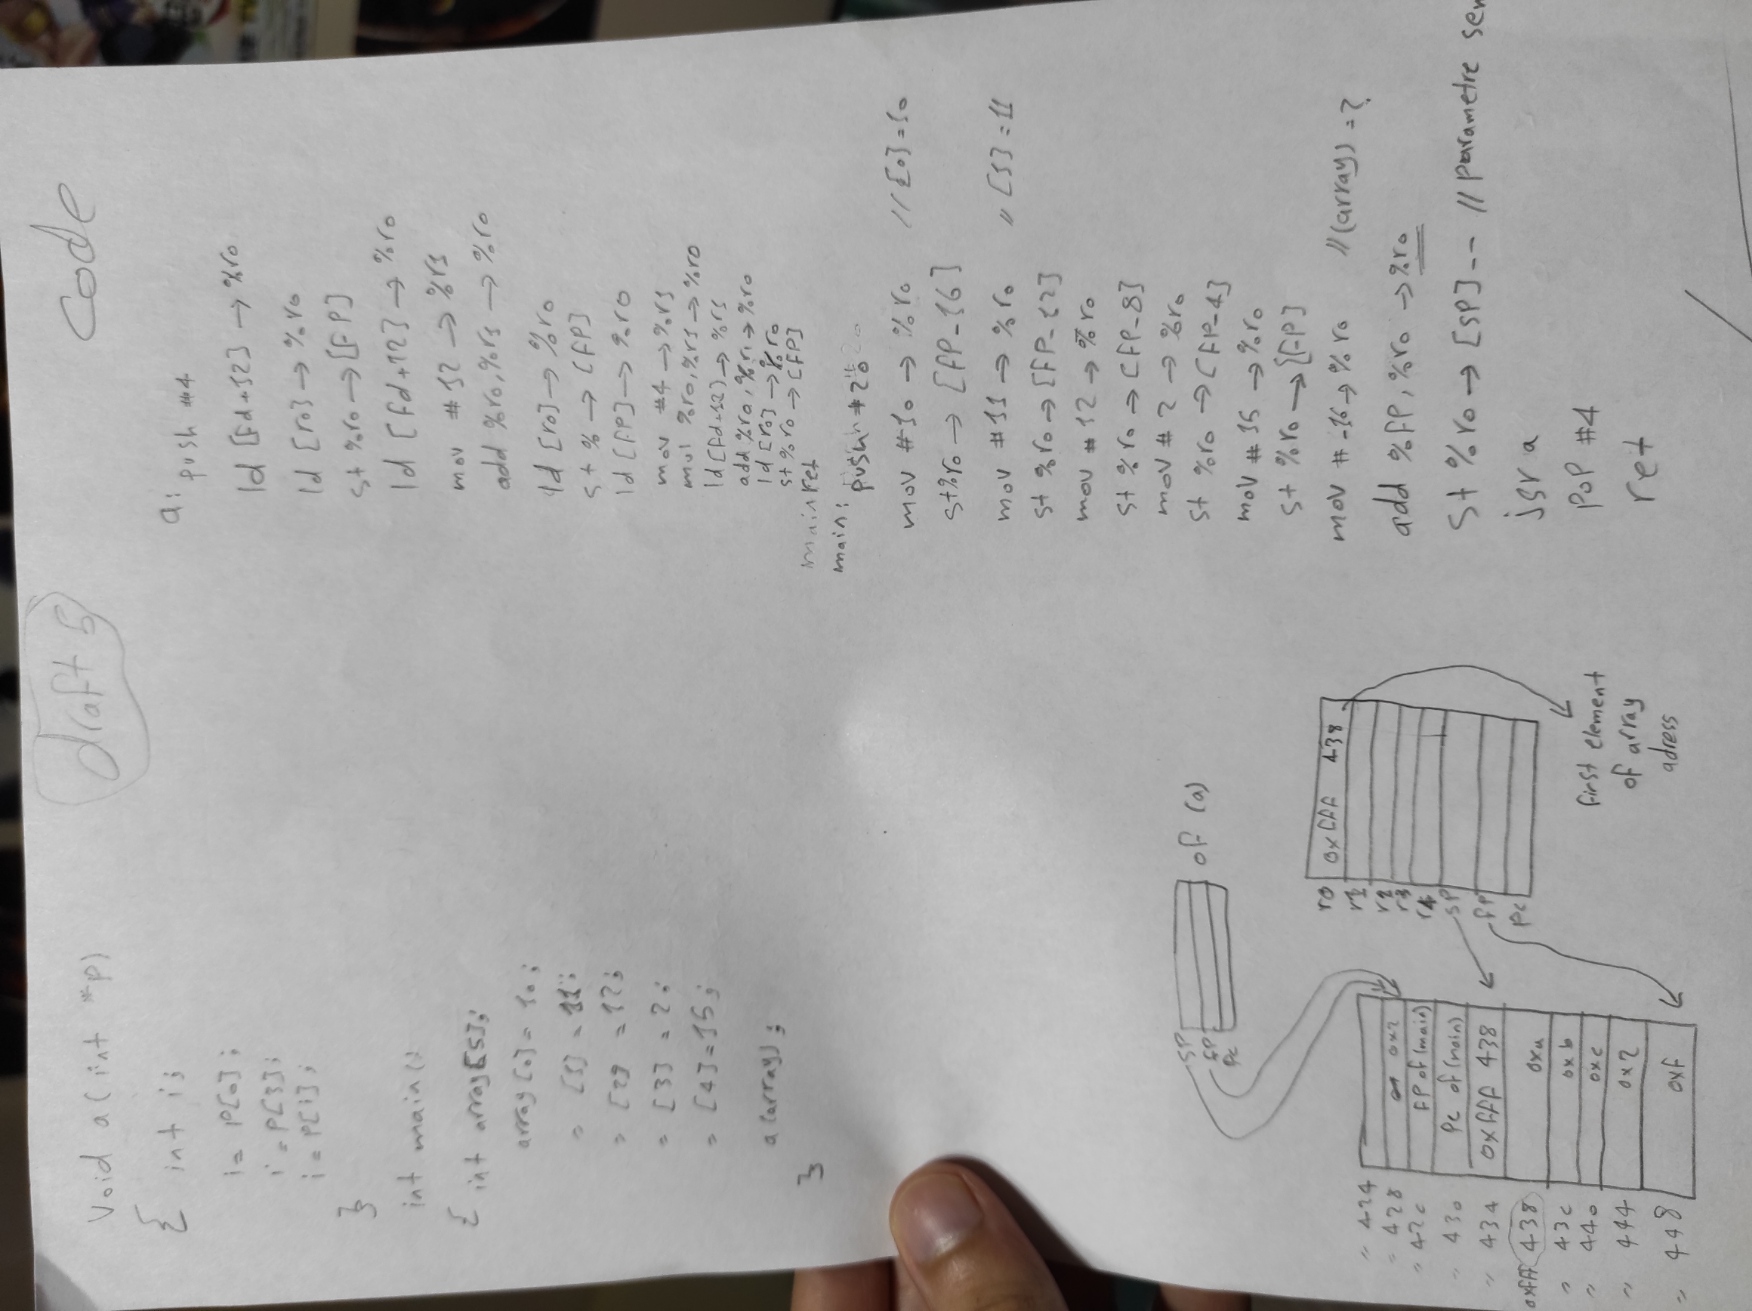 draft 5
code
void a(int *p)
{ int i;
i = p[0];
i = p[3];
i = p[i];
}
int main():
{ int array[5];
array[0] = 10;
" [1] = 11;
" [2] = 12;
" [3] = 2;
" [4] = 15;
a(array);
}
a: push #4
ld [fd+12] → %r0
ld [r0] → %r0
st %r0 → [FP]
ld [fd+12] → %r0
mov #12 → %r1
add %r0, %r1 → %r0
ld [r0] → %r0
st % → [FP]
ld [FP] → %r0
mov #4 → %r1
mul %r0, %r1 → %r0
ld [fd+12] → %r1
add %r0, %r1 → %r0
ld [r0] → %r0
st %r0 → [FP]
main ret
main:
push #20
mov #10 → %r0 // [0]=10
st %r0 → [FP-16]
mov #11 → %r0 // [1]=11
st %r0 → [FP-12]
mov #12 → %r0
st %r0 → [FP-8]
mov #2 → %r0
st %r0 → [FP-4]
mov #15 → %r0
st %r0 → [FP]
mov #-16 → %r0 //(array)=?
add %FP, %r0 → %r0
st %r0 → [SP]-- // parametre
jsr a
pop #4
ret
SP
FP
PC
of (a)
" 424
" 428 0x2
" 42c FP of (main)
" 430 PC of (main)
" 434 0xfff 438
0xfff 438 0xa
" 43c 0xb
" 440 0xc
" 444 0x2
" 448 0xf
r0 0xfff 438
r1
r2
r3
r4
SP
FP
PC
first element
of array
adress